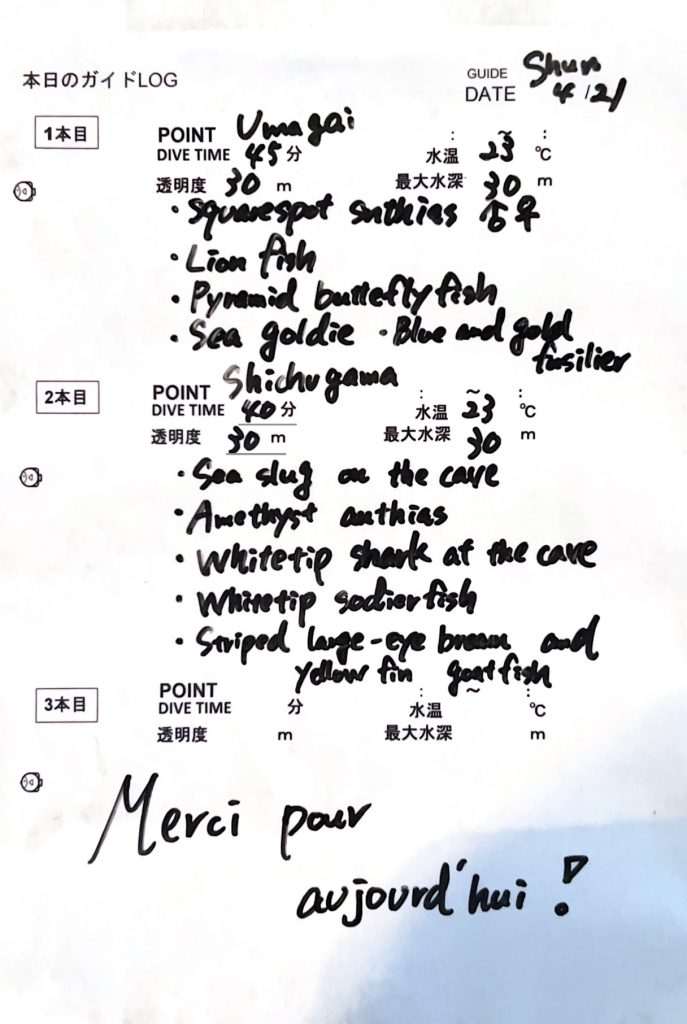 本日のガイドLOG
GUIDE Shun
DATE 4/21
1本目 POINT Umagai : ~ :
DIVE TIME 45分 水温 23 ℃
透明度 30 m 最大水深 30 m
・Squarespot anthias ♂♀
・Lion fish
・Pyramid butteflyfish
・Sea goldie ・Blue and gold
fusilier
2本目 POINT Shichugama : ~ :
DIVE TIME 40分 水温 23 ℃
透明度 30 m 最大水深 30 m
・Sea slug on the cave
・Amethyst anthias
・Whitetip shark at the cave
・Whitetip sodierfish
・Striped large-eye bream and
yellow fin goatfish
3本目 POINT : ~ :
DIVE TIME 分 水温 ℃
透明度 m 最大水深 m
Merci pour
aujourd'hui !